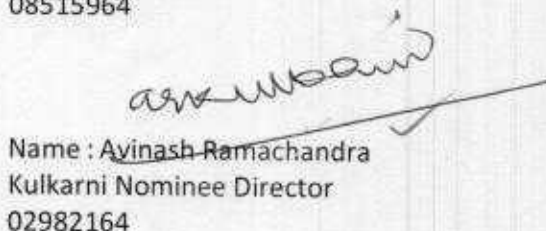 08515964
Name : Avinash Ramachandra
Kulkarni Nominee Director
02982164